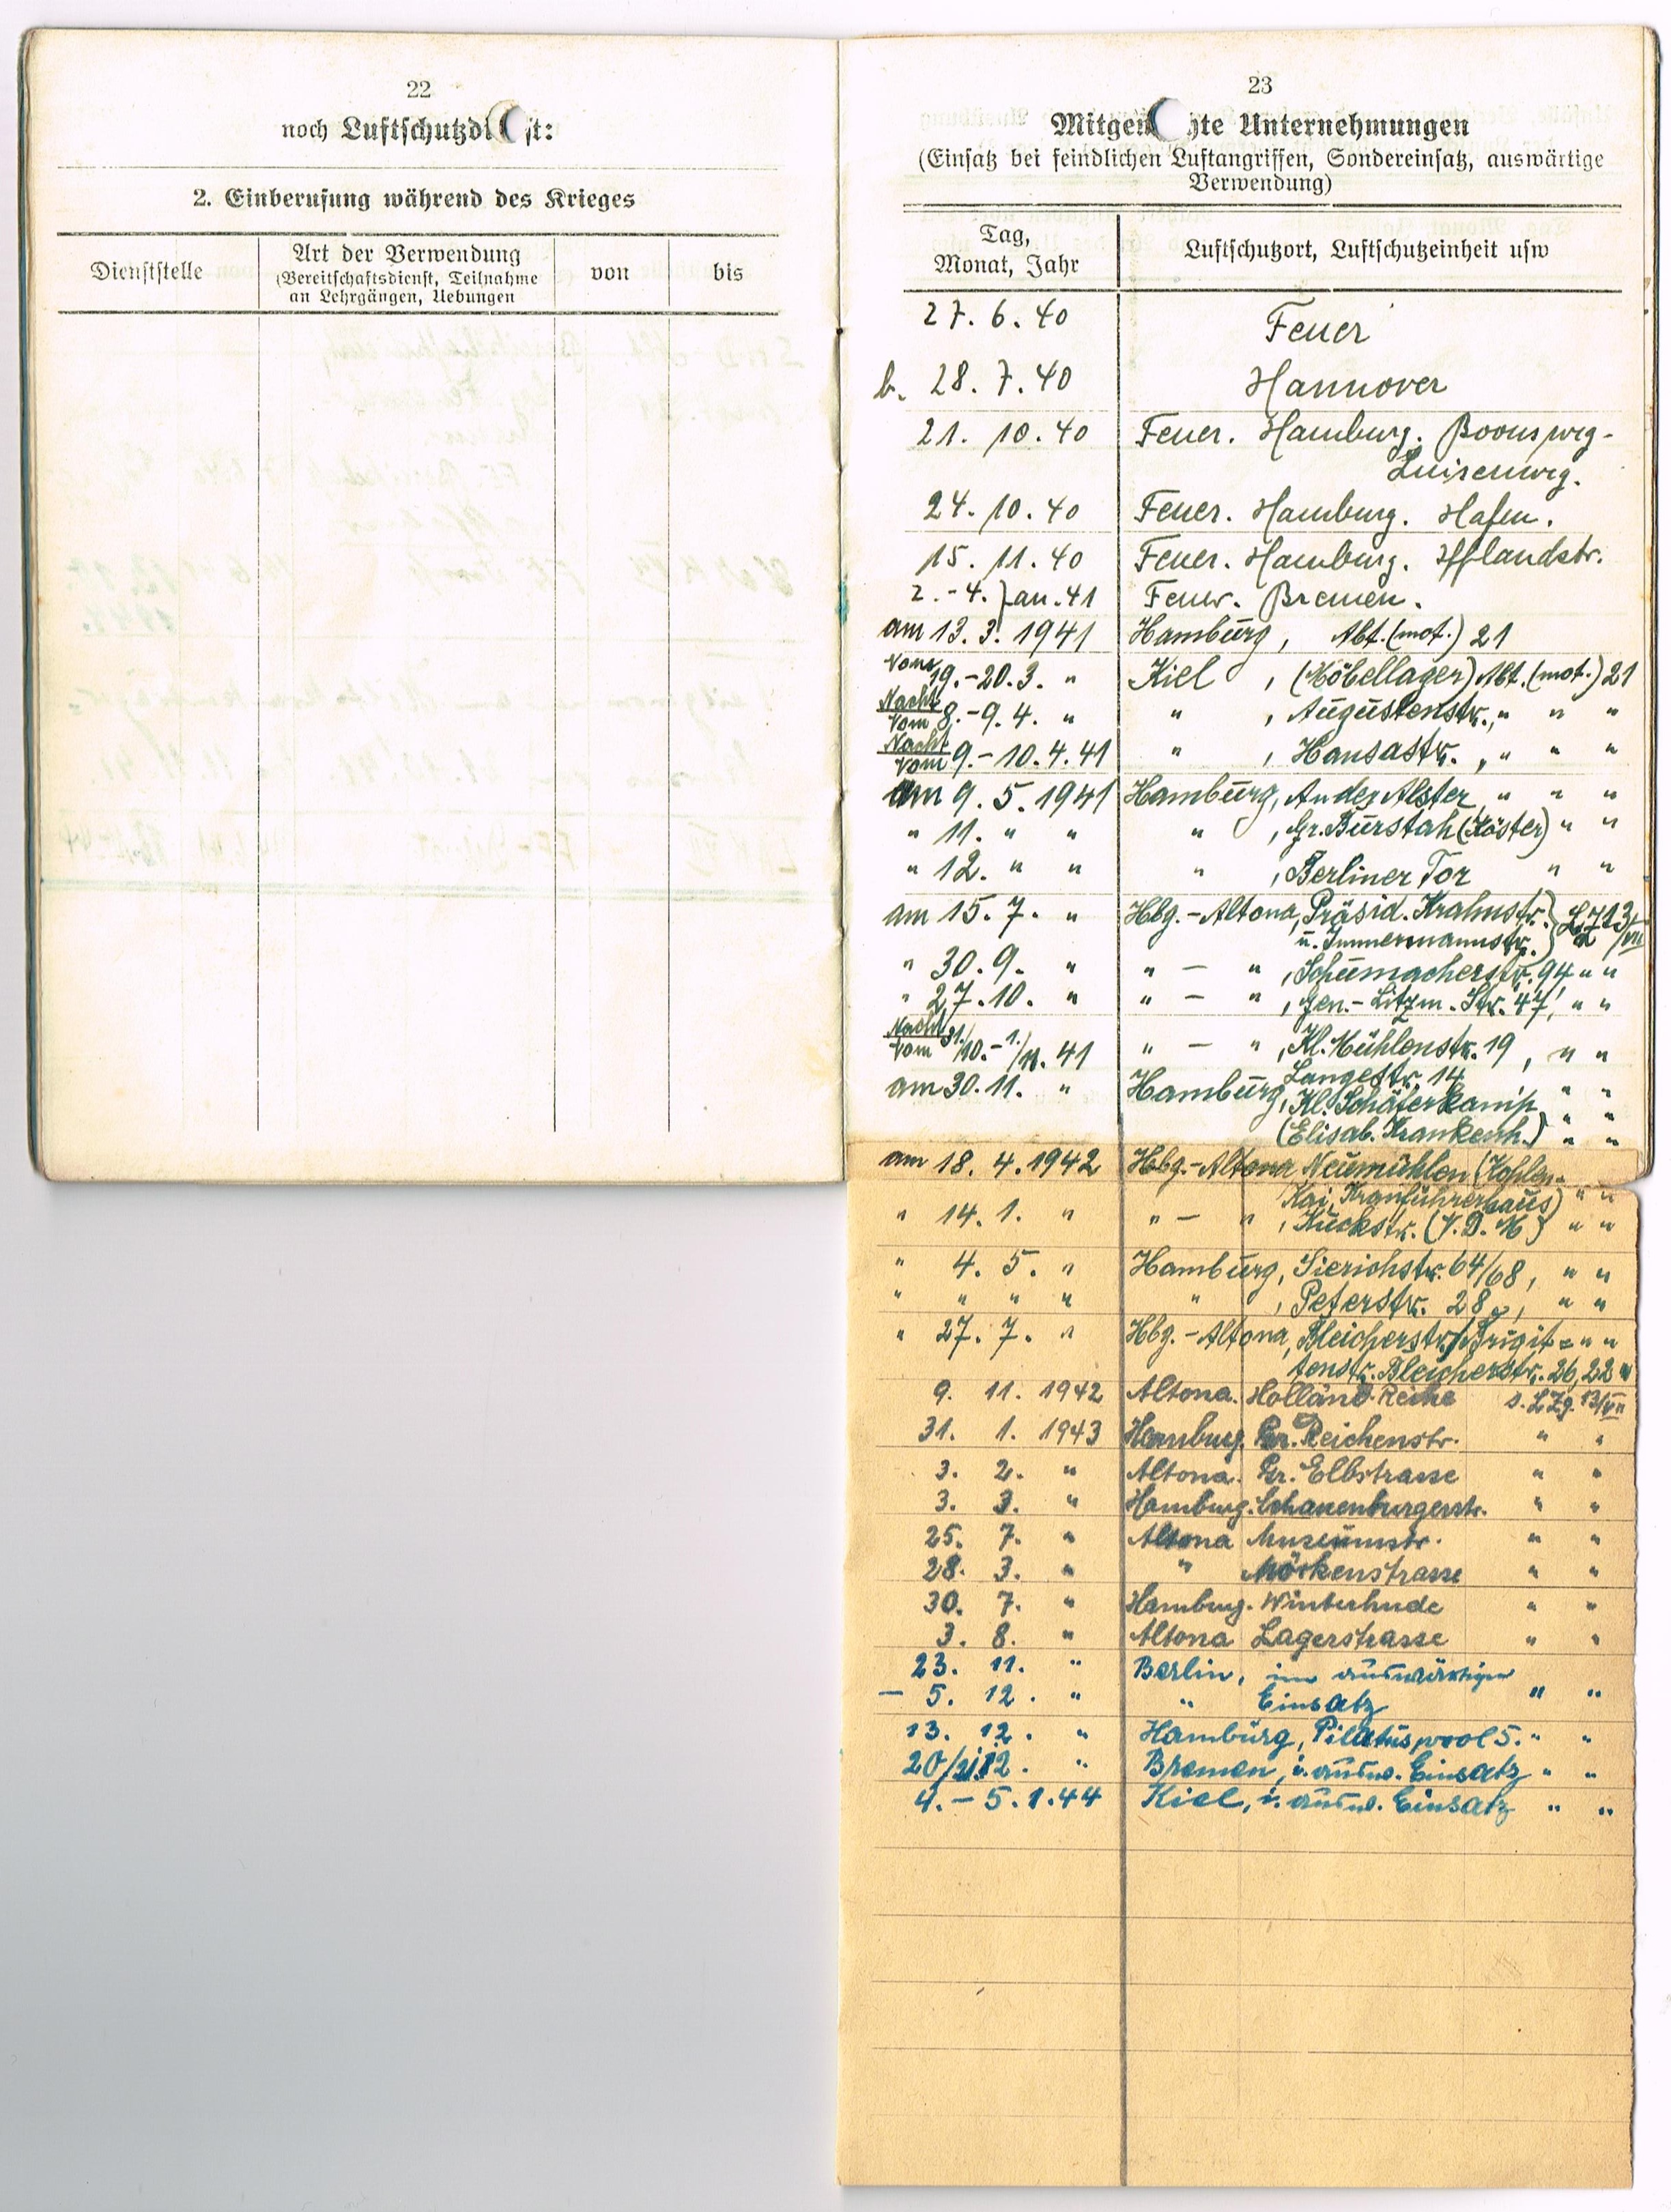 22
noch Luftschutzdi st:
2. Einberufung während des Krieges
Dienststelle
Art der Verwendung
(Bereitschaftsdienst, Teilnahme
an Lehrgängen, Uebungen
von
bis
23
Mitgem hte Unternehmungen
(Einsatz bei feindlichen Luftangriffen, Sondereinsatz, auswärtige
Verwendung)
Tag,
Monat, Jahr
Luftschutzort, Luftschutzeinheit usw
27. 6. 40 Feuer
b. 28. 7. 40 Hannover
21. 10. 40 Feuer. Hamburg.
Luisenweg.
24. 10. 40 Feuer. Hamburg. Hafen.
15. 11. 40 Feuer. Hamburg. Ifflandstr.
2.-4. Jan. 41 Feuer. Bremen.
am 13. 3. 1941 Hamburg, Abt. (mot.) 21
Vom 19.-20. 3. " Kiel, (Möbellager) Abt. (mot.) 21
Nacht vom 8.-9. 4. " " , Augustenstr., " " "
Nacht vom 9.-10. 4. 41 " , Hansastr., " " "
am 9. 5. 1941 Hamburg, An der Alster, " " "
" 11. " " " , Gr. Burstah (Köster) " "
" 12. " " " , Berliner Tor " "
am 15. 7. " Hbg.-Altona, Präsid. Krahnstr. 13/VII
u. Immermannstr.
" 30. 9. " " - " , Schumacherstr. 94 " "
" 27. 10. " " - " , Gen.-Litzm.-Str. 47, " "
Nacht vom 31./10.-1./11. 41 " - " , Kl. Mühlenstr. 19, " "
Langestr. 14
am 30. 11. " Hamburg, Kl. Schäferkamp " "
(Elisab. Krankenh.) " "
am 18. 4. 1942 Hbg.-Altona Neumühlen (Kohlen-
Kai, Kranführerhaus) " "
" 14. 1. " " - " , Kuckstr. (V.D.M) " "
" 4. 5. " Hamburg, Sierichstr. 64/68, " "
" " " " " , Peterstr. 28, " "
" 27. 7. " Hbg.-Altona, Bleicherstr./Brigit= " "
tenstr. Bleicherstr. 26, 22 "
9. 11. 1942 Altona. Holländ. Reihe s. LZg. 13/VII
31. 1. 1943 Hamburg. Gr. Reichenstr. " "
3. 2. " Altona. Gr. Elbstrasse " "
3. 3. " Hamburg. Schauenburgerstr. " "
25. 7. " Altona Museumstr. " "
28. 3. " " Mörkenstrasse " "
30. 7. " Hamburg. Winterhude " "
3. 8. " Altona Lagerstrasse " "
23. 11. " Berlin, im auswärtigen
- 5. 12. " " Einsatz " "
13. 12. " Hamburg, Pilatuspool 5. " "
20/21. 12. " Bremen, i. ausw. Einsatz " "
4.-5. 1. 44 Kiel, i. ausw. Einsatz " "